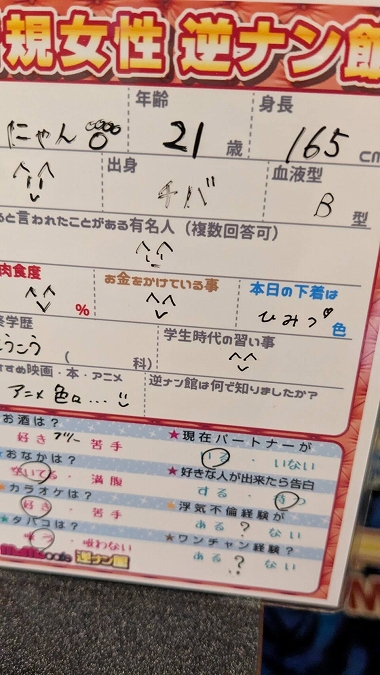 規女性 逆ナン館
年齢
身長
にゃん
21 歳
165 cm
出身
血液型
チバ
B 型
ると言われたことがある有名人(複数回答可)
肉食度
お金をかけている事
本日の下着は
%
ひみつ♡ 色
終学歴
学生時代の習い事
こうこう
( 科)
すすめ映画・本・アニメ
逆ナン館は何で知りましたか?
アニメ 色々...
お酒は?
★現在パートナーが
好き フツー 苦手
いる・いない
★おなかは?
★好きな人が出来たら告白
空いてる・満腹
する・待つ
★カラオケは?
★浮気不倫経験が
好き・苦手
ある ? ない
★タバコは?
★ワンチャン経験?
吸う・吸わない
ある ? ない
逆ナン館